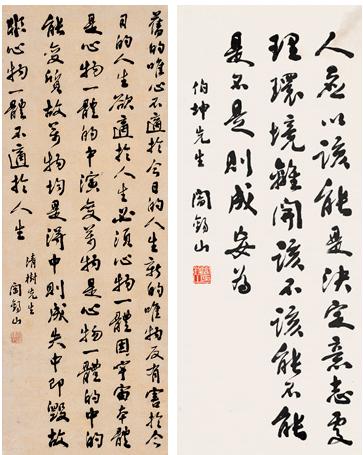 人應以該能是決定意志處
理環境離開該不該能不能
是不是則成妄為
伯坤先生 閻錫山
舊的唯心不適於今日的人生新的唯物反有害於今
日的人生欲適於人生必須心物一體因宇宙本體
是心物一體的中演變萬物是心物一體的中的
能變質故萬物均是得中則成失中即毀故
非心物一體不適於人生
清樹先生
閻錫山